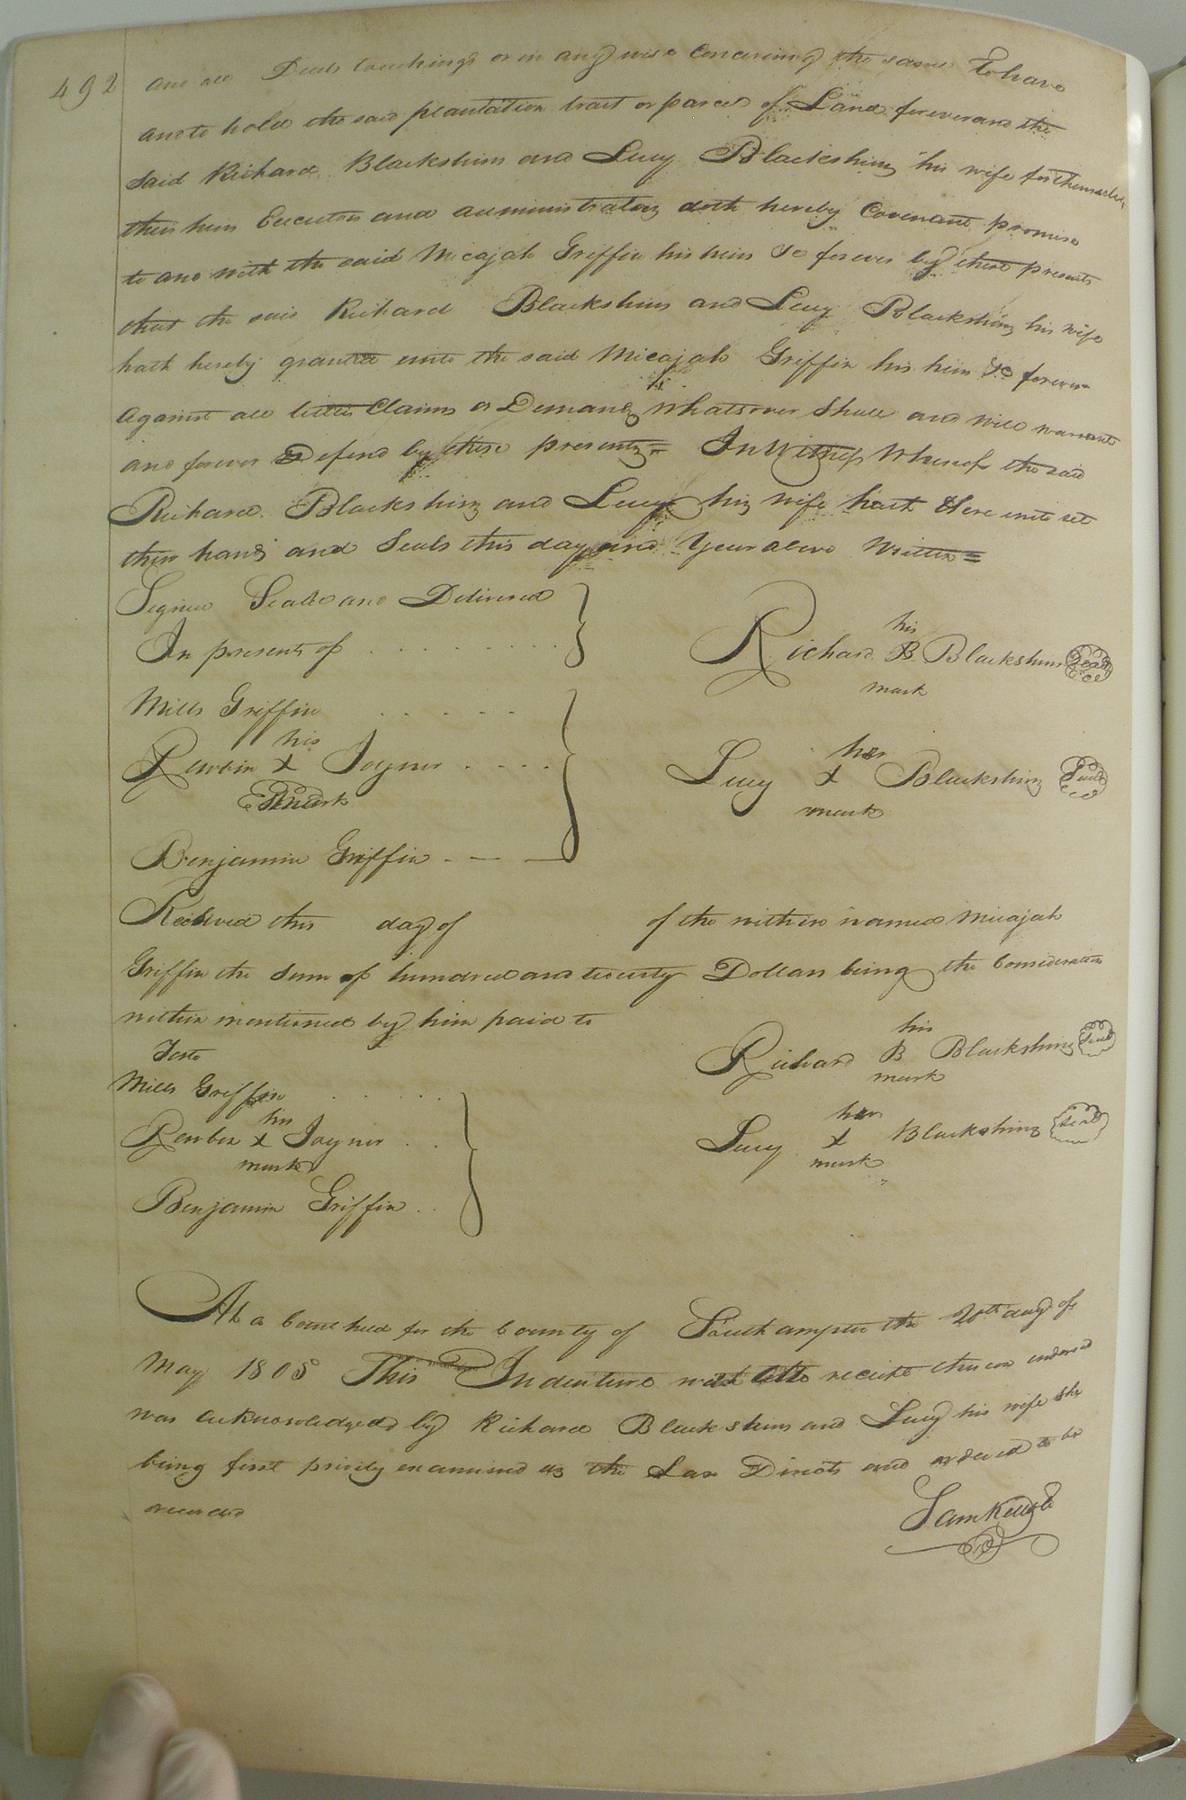 492
and all Deeds touching or in any wise Concerning the same To have
and to hold the said plantation tract or parcel of Land forever and the
said Richard Blackshins and Lucy Blackshins his wife for themselves
their heirs Executors and administrators doth hereby Covenant promise
to and with the said Micajah Griffin his heirs &c forever by these presents
that the said Richard Blackshins and Lucy Blackshins his wife
hath hereby granted unto the said Micajah Griffin his heirs &c forever
against all titles Claims or Demands Whatsover Shall and will warrant
and forever Defend by these presents = In Witness Whereof the said
Richard Blackshins and Lucy his wife hath Here unto set
their hands and Seals this day and Year above Written =
Signed Seald and Delivered
In presents of . . . . . . . . . .
Richard his B mark Blackshins Seal
Mills Griffin . . . . .
Rewbin his X mark Joyner . . . .
Lucy her X mark Blackshins Seal
Benjamin Griffin - — —
Received this day of of the within named Micajah
Griffin the Sum of hundred and twenty Dollars being the Consideration
within mentioned by him paid to
Teste
Richard his B mark Blackshins Seal
Mills Griffin . . . . .
Rewben his X mark Joyner . .
Lucy her X mark Blackshins Seal
Benjamin Griffin . .
At a Court held for the County of Southampton the 20th day of
May 1805 This Indenture with the receipt thereon endorsed
was acknowledged by Richard Blackshins and Lucy his wife she
being first privily examined as the Law Directs and ordered to be
recorded
Sam Kello C